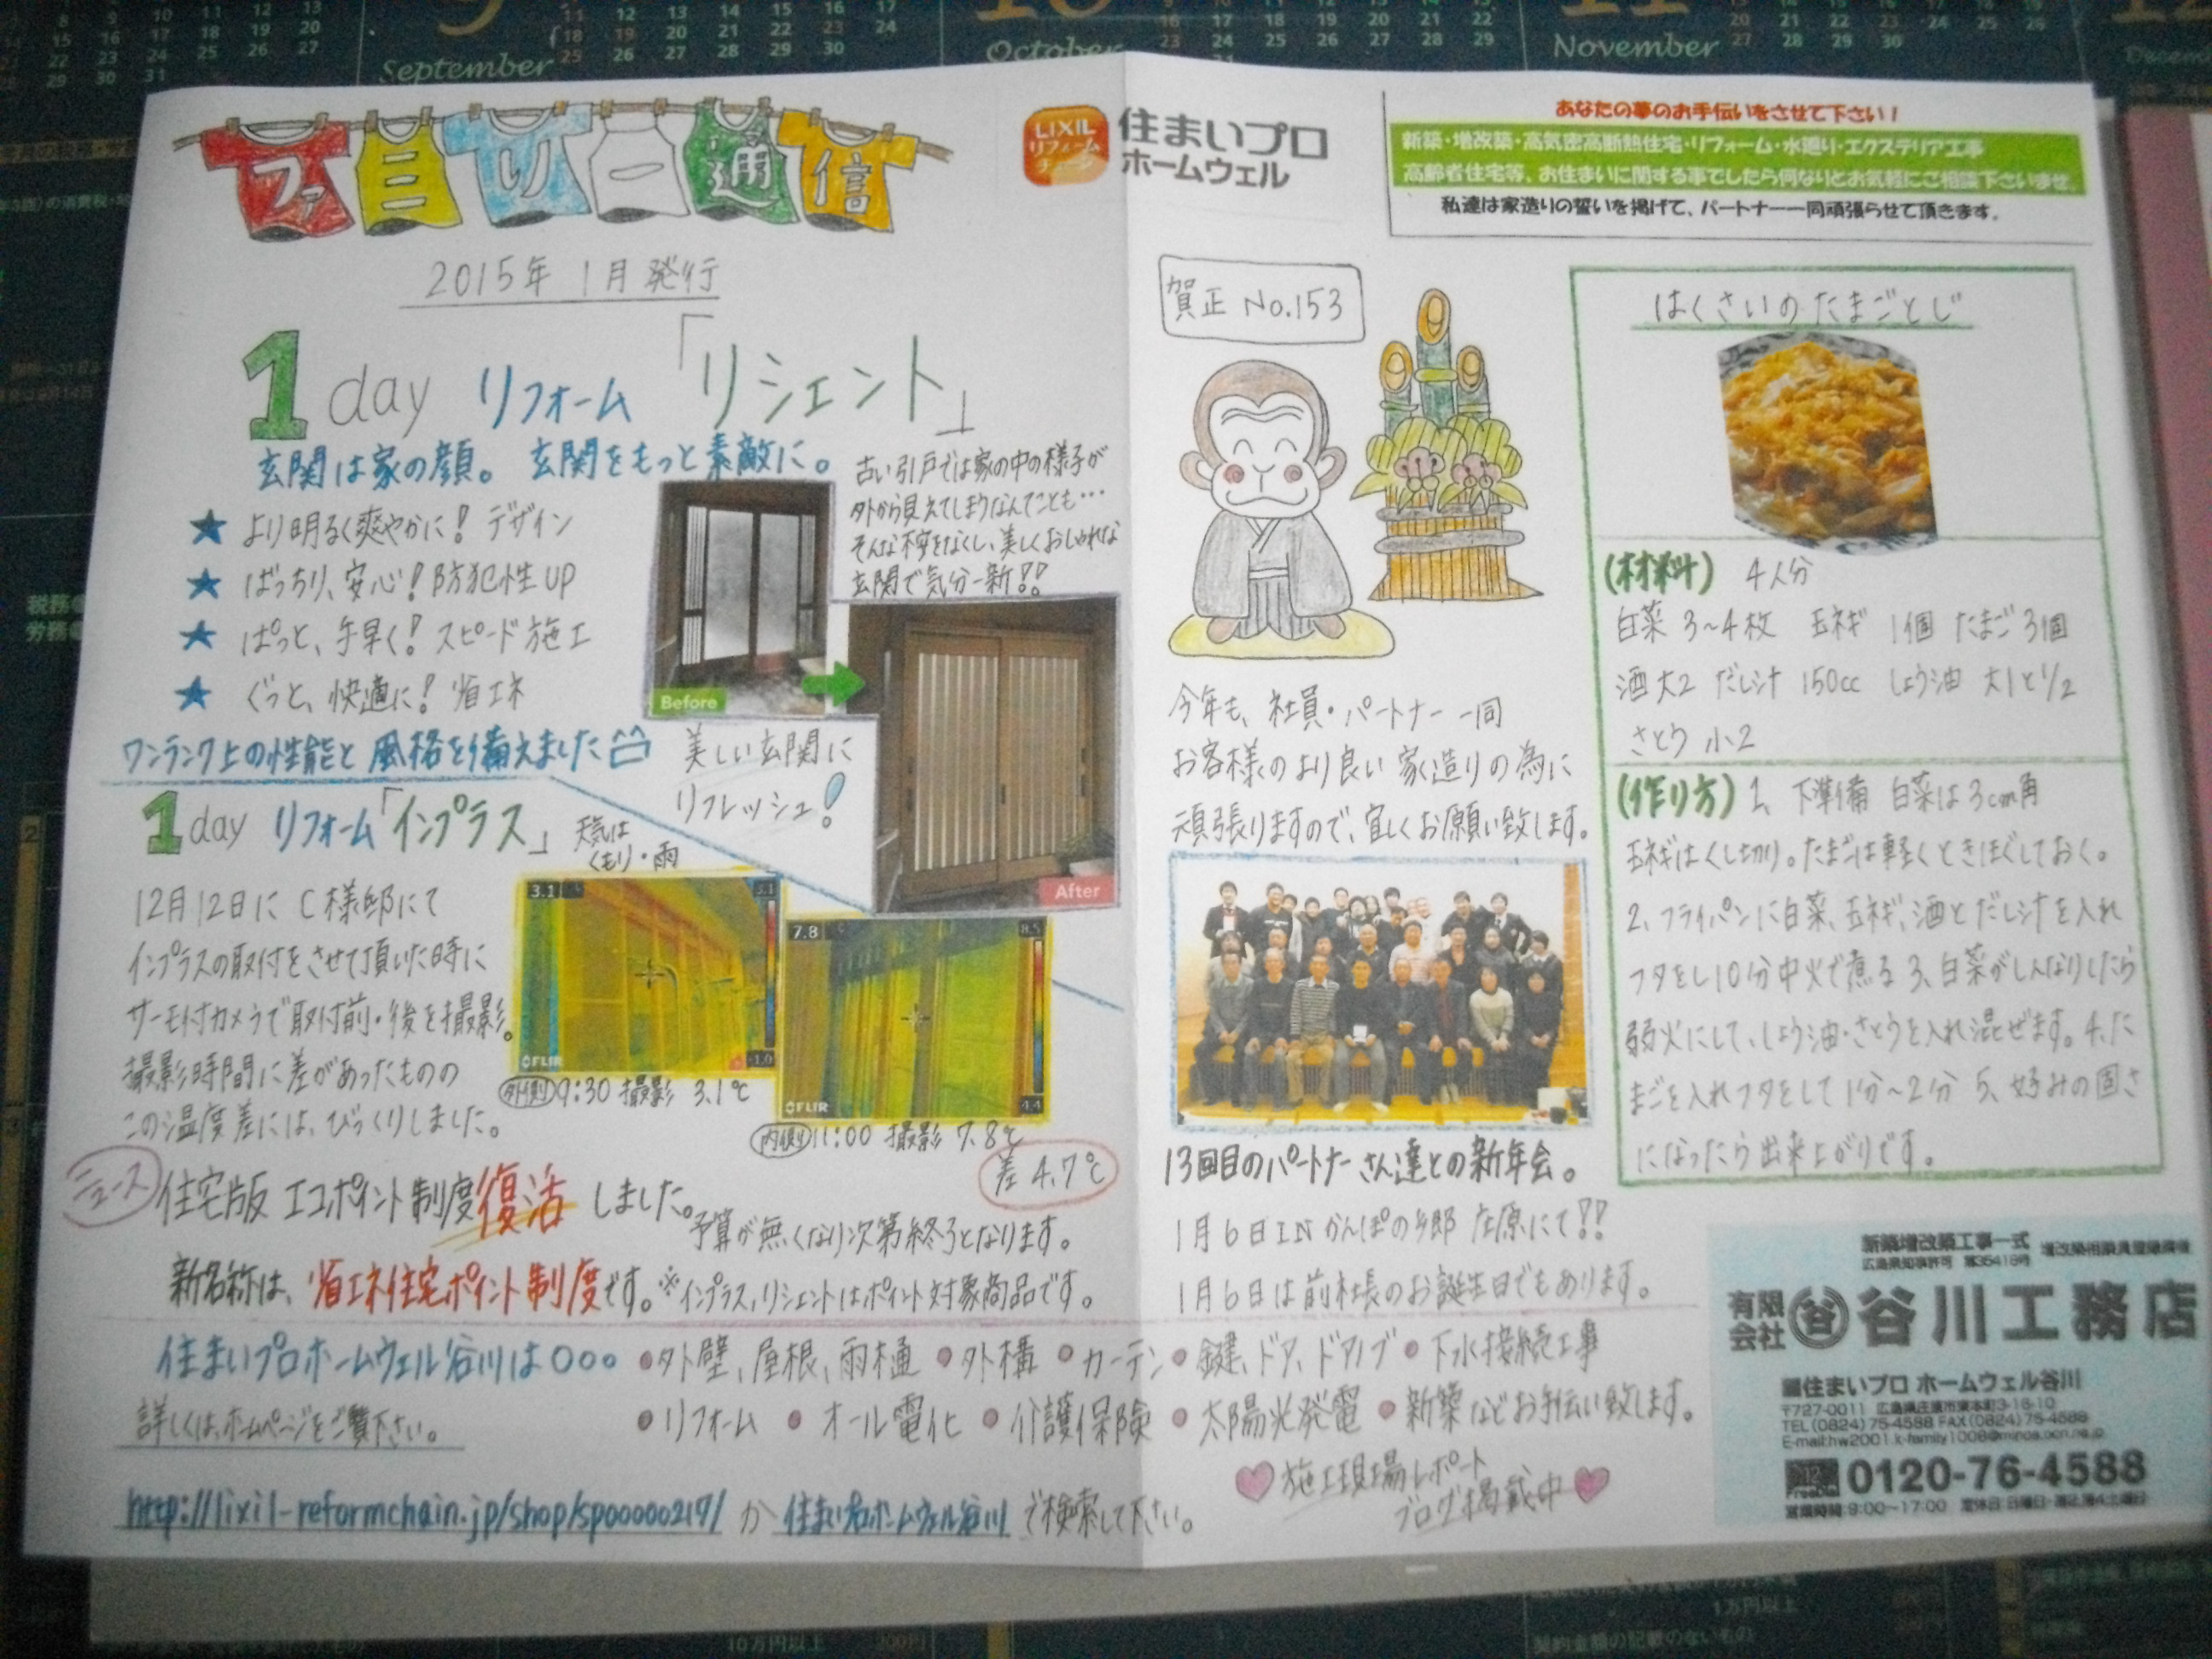 ファミリー通信
2015年 1月発行
1day リフォーム「リシェント」
玄関は家の顔。 玄関をもっと素敵に。
★ より明るく爽やかに! デザイン
★ ばっちり、安心! 防犯性UP
★ ぱっと、手早く! スピード施工
★ ぐっと、快適に! 省エネ
ワンランク上の性能と風格を備えました
古い引戸では家の中の様子が
外から見えてしまうなんてことも…
そんな不安をなくし、美しくおしゃれな
玄関で気分一新!!
Before
After
美しい玄関に
リフレッシュ!
1day リフォーム「インプラス」
天気は
くもり・雨
12月12日に C様邸にて
インプラスの取付をさせて頂いた時に
サーモ付カメラで取付前・後を撮影。
撮影時間に差があったものの
この温度差には、びっくりしました。
3.1
3.1
-1.0
FLIR
外側 9:30 撮影 3.1℃
7.8
8.5
4.4
FLIR
内側 11:00 撮影 7.8℃
差 4.7℃
ニュース 住宅版 エコポイント制度復活しました。
予算が無くなり次第終了となります。
新名称は、省エネ住宅ポイント制度です。※インプラス、リシェントはポイント対象商品です。
住まいプロホームウェル谷川は○○○ ●外壁、屋根、雨樋 ●外構 ●カーテン ●鍵、ドア、ドアノブ ●下水接続工事
詳しくは、ホームページをご覧下さい。 ●リフォーム ●オール電化 ●介護保険 ●太陽光発電 ●新築などお手伝い致します。
http://lixil-reformchain.jp/shop/sp00000217/ か 住まいプロホームウェル谷川 で検索して下さい。
施工現場レポート
ブログ掲載中
LIXIL
リフォーム
チェーン
住まいプロ
ホームウェル
あなたの夢のお手伝いをさせて下さい!
新築・増改築・高気密高断熱住宅・リフォーム・水廻り・エクステリア工事
高齢者住宅等、お住まいに関する事でしたら何なりとお気軽にご相談下さいませ。
私達は家造りの誓いを掲げて、パートナー一同頑張らせて頂きます。
賀正 No.153
今年も、社員・パートナー 一同
お客様のより良い家造りの為に
頑張りますので、宜しくお願い致します。
13回目のパートナーさん達との新年会。
1月6日INかんぽの郷 庄原にて!!
1月6日は前社長のお誕生日でもあります。
はくさいのたまごとじ
(材料) 4人分
白菜 3~4枚 玉ネギ 1個 たまご 3個
酒 大2 だし汁 150cc しょう油 大1と1/2
さとう 小2
(作り方) 1、下準備 白菜は3cm角
玉ネギはくし切り。たまごは軽くときほぐしておく。
2、フライパンに白菜、玉ネギ、酒とだし汁を入れ
フタをし10分中火で煮る 3、白菜がしんなりしたら
弱火にして、しょう油・さとうを入れ混ぜます。4、た
まごを入れフタをして1分~2分 5、好みの固さ
になったら出来上がりです。
新築増改築工事一式 増改築相談員登録業者
広島県知事許可 第35419号
有限会社 谷 谷川工務店
住まいプロ ホームウェル谷川
〒727-0011 広島県庄原市東本町3-16-10
TEL(0824)75-4588 FAX(0824)75-4588
0120-76-4588
営業時間 9:00~17:00 定休日:日曜日・第2、第4土曜日
September
October
November